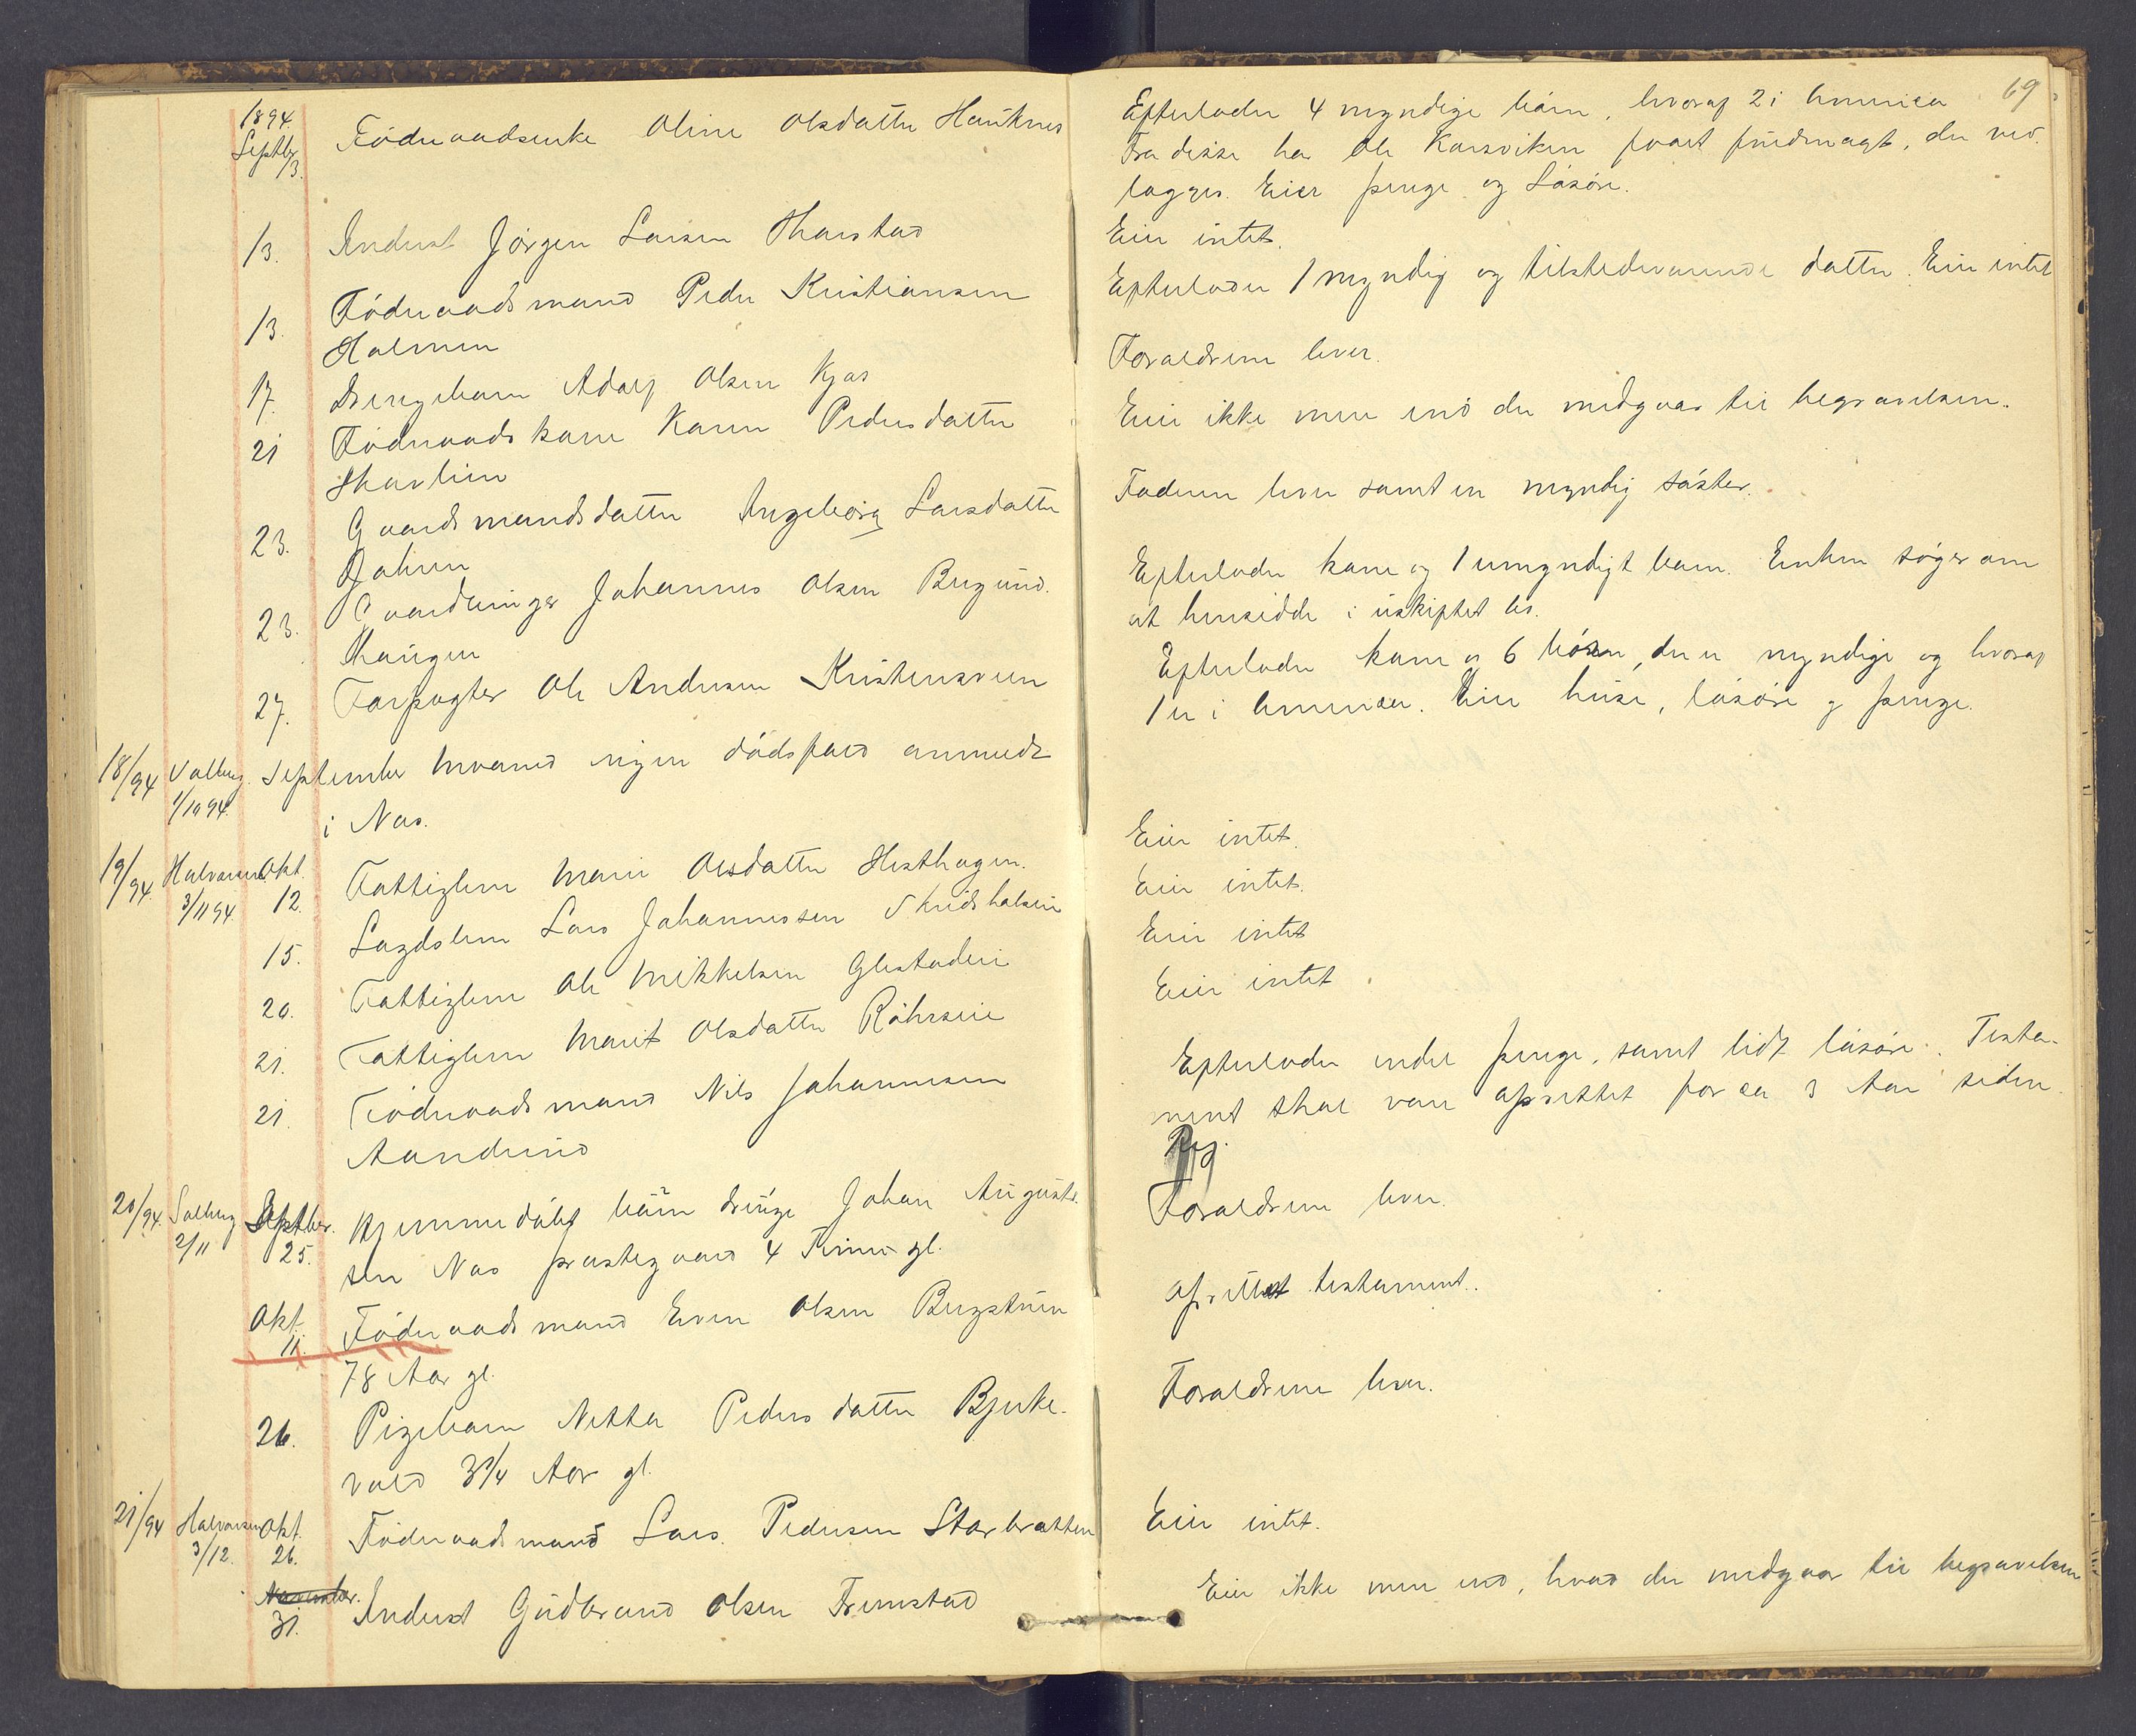 1894.
Septbr
13. Föderaadsenke Oline Olsdatter Hauknes
13. Inderst Jörgen Larsen Tharstad
13. Föderaadsmand Peder Kristiansen
Holmen
17. Drengebarn Adolf Olsen Kjos
21 Föderaadskone Karen Pedersdatter
23. Gaardmandsdatter Ingeborg Larsdatter
23. Gaardbruger Johannes Olsen Bergund.
haugen
27. Forpagter Ole Andersen Kristensveen
18/94 Valberg 1/10 94. September maaned ingen dödsfald anmeldt
i Næs.
19/94. Halvorsen 3/11 94. Okt.
12. Fattiglem Marie Olsdatter Hesthagen.
15. Lægdslem Lars Johannessen Skridshalsen
20. Fattiglem Ole Mikkelsen Glestadeie
21. Fattiglem Marit Olsdatter Röhneeie
21. Föderaadsmand Nils Johannesen
Aanerud
20/94. Solberg 2/11 Septbr.
25. Hjemmedöbt barn drenge Johan August-
sen Næs prestegaard 4 Timer gl.
Okt.
11. Föderaadsmand Even Olsen Bergstuen
78 Aar gl.
26. Pigebarn Netta Pedersdatter Bjerke-
vold 3 1/4 Aar gl.
21/94 Halvorsen 3/12. Okt.
26. Föderaadsmand Lars Pedersen Storbratten
November.
31. Inderst Gudbrand Olsen Fremstad
69
Efterlader 4 myndige börn, hvoraf 2 i Amerika
Fra disse har Ole Karsviken faaet fuldmagt, der ved-
lægges. Eier penge og Lösöre.
Eier intet.
Efterlader 1 myndig og tilstedeværende datter. Eier intet
Forældrene lever.
Eier ikke mere end der medgaar til begravelsen.
Faderen lever samt en myndig söster.
Efterlader kone og 1 umyndigt barn. Enken söger om
at hensidde i uskiftet bo.
Efterlader kone og 6 börn, der er myndige og hvoraf
1 er i Amerika. Eier huse, lösöre og penge.
Eier intet.
Eier intet.
Eier intet
Eier intet
Efterlader endel penge, samt lidt lösöre. Testa-
ment skal være oprettet for ca 3 Aar siden.
Forældrene lever.
Oprettet testament.
Forældrene lever.
Eier intet.
Eier ikke mere end, hvad der medgaar til begravelsen